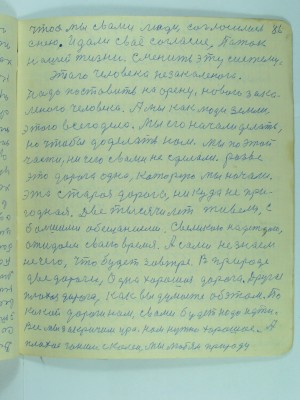 чтоб мы с вами люди, согласились 86
с нею. И дали своё согласие, Паток
нашей жизни. Сменить эту систему.
Этого человека незакаленого.
Надо поставить на арену, нового зака-
леного человека. А мы как люди земли
этого всего дела. Мы его начали делать,
но чтобы доделать нам. Мы по этой
части, ничего с вами не сделали. разве
это дорога одна, которую мы начали.
эта старая дорога, никуда не при-
годная. Две тысячи лет живем, с
большими обещаниями. С великою надеждою,
ожидаем своего время. А сами не знаем
нечего, что будет завтра. В природе
две дороги, Одна хорошая дорога. Другая
плохая дорога, Как вы думаете об этом. По
какой дороги нам, с вами будет надо идти.
Все мы говорим про. нам нужно хорошее. А
плохое гоним мы, мы природу